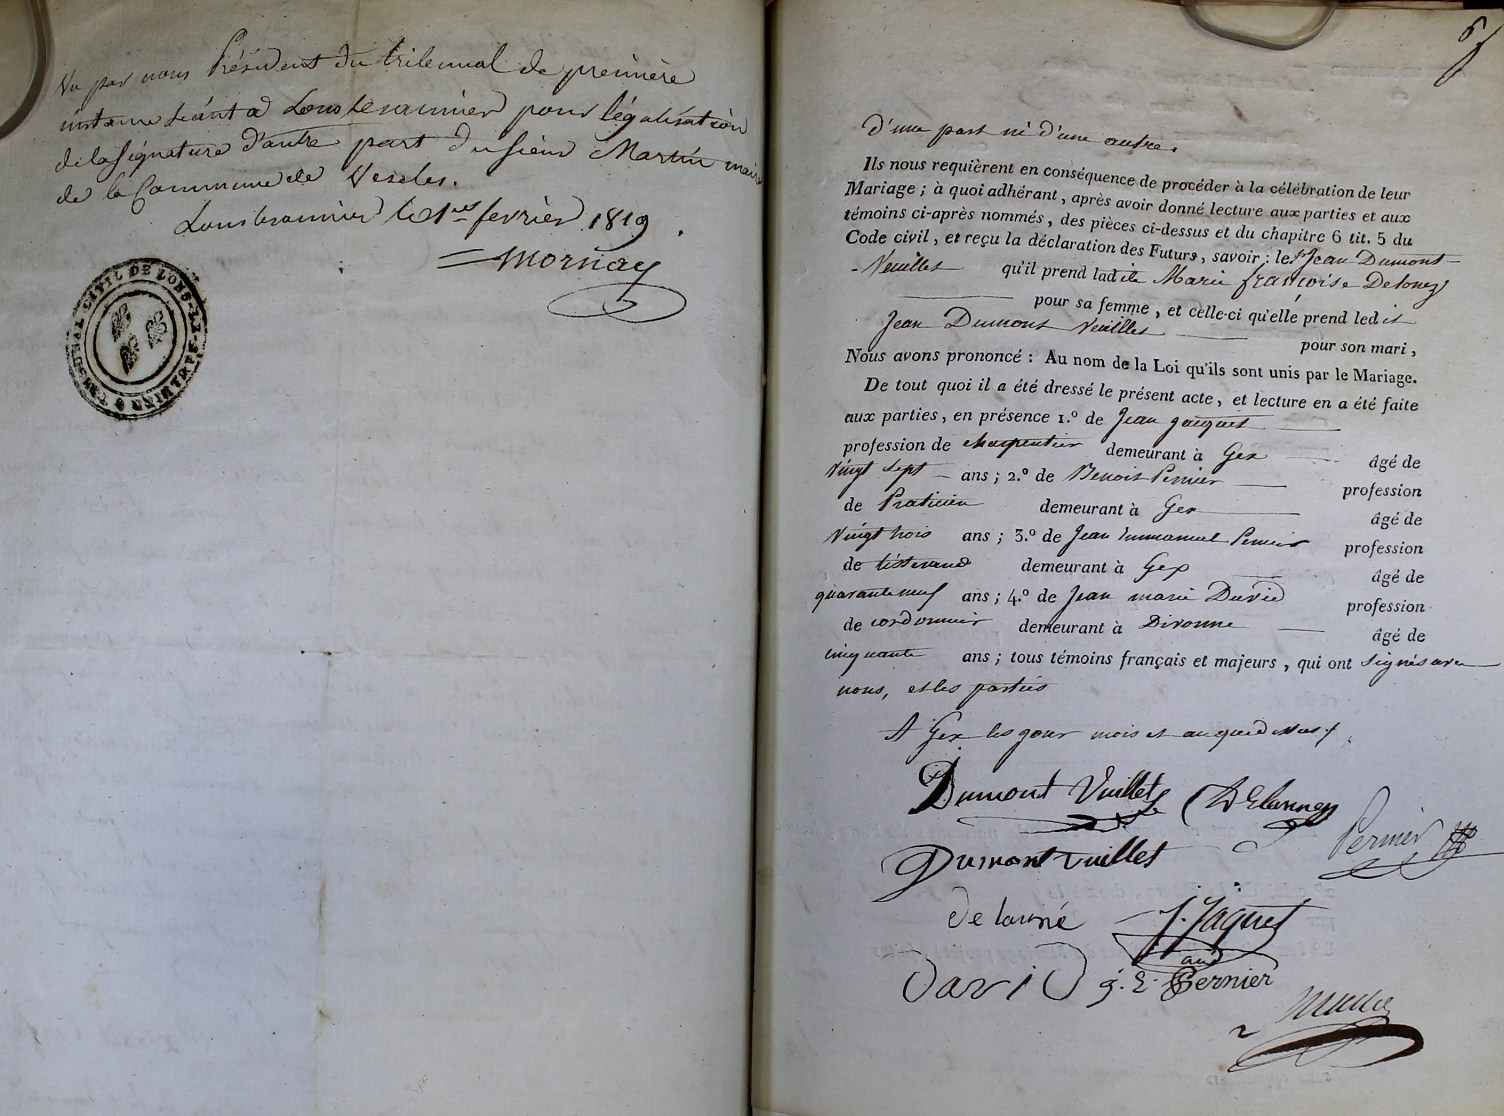 Vu par nous Président du tribunal de première
instance séant à Lons lesaunier pour légalisation
de la signature d'autre part du sieur Martin maire
de la Commune de
Lons lesaunier le 1er fevrier 1819.
Mornay
TRIBUNAL CIVIL DE LONS-LE-SAUNIER
6
d'une part ni d'une autre.
Ils nous requièrent en conséquence de procéder à la célébration de leur
Mariage ; à quoi adhérant, après avoir donné lecture aux parties et aux
témoins ci-après nommés, des pièces ci-dessus et du chapitre 6 tit. 5 du
Code civil, et reçu la déclaration des Futurs, savoir : le sr Jean Dumont
- Vuillet qu'il prend ladite Marie françoise Delonez
pour sa femme, et celle-ci qu'elle prend ledit
Jean Dumont Vuillet pour son mari,
Nous avons prononcé : Au nom de la Loi qu'ils sont unis par le Mariage.
De tout quoi il a été dressé le présent acte, et lecture en a été faite
aux parties, en présence 1.º de Jean Jacquet
profession de charpentier demeurant à Gex âgé de
vingt sept ans ; 2.º de Benoit Pernier profession
de Praticien demeurant à Gex âgé de
vingt trois ans ; 3.º de Jean Emmanuel Pernier profession
de tisserand demeurant à Gex âgé de
quarante neuf ans ; 4.º de Jean marie David profession
de cordonnier demeurant à Divonne âgé de
cinquante ans ; tous témoins français et majeurs, qui ont signés avec
nous, et les parties
A Gex les jour mois et an que dessus.
Dumont Vuillet Delauney
Pernier
Dumont vuillet
delauné J. Jaquet
David j. E. Pernier